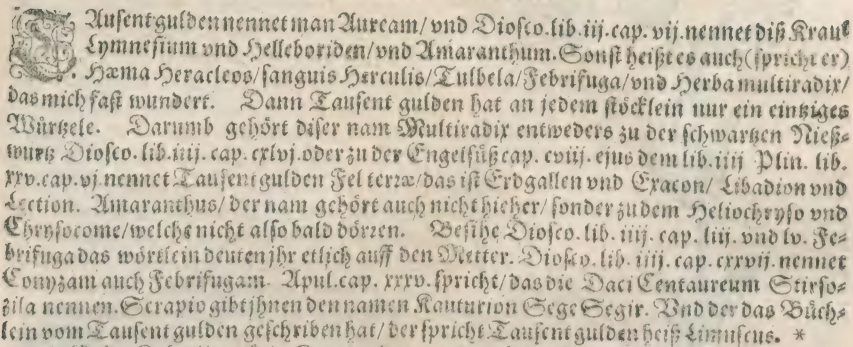 Tausent gulden nennet man Auream/ vnd Diosco. lib. iij. cap. vij. nennet diß Kraut
Lymnesium vnd Helleboriden/ vnd Amaranthum. Sonst heißt es auch (spricht er)
Hæma Heracleos/ sanguis Herculis/ Tulbela/ Febrifuga/ vnd Herba multiradix/
das mich fast wundert. Dann Tausent gulden hat an jedem stöcklein nur ein eintziges
Würtzele. Darumb gehört diser nam Multiradix entweders zu der schwartzen Nieß-
wurtz Diosco. lib. iiij. cap. cxlvj. oder zu der Engelsüß cap. cviij. ejusdem lib. iiij Plin. lib.
xxv. cap. vj nennet Tausent gulden Fel terræ/ das ist Erdgallen vnd Exacon/ Libadion vnd
Lection. Amaranthus/ der nam gehört auch nicht hieher/ sonder zu dem Heliochryso vnd
Chrysocome/ welchs nicht also bald dörren. Besihe Diosco. lib. iiij. cap. liij. vnd lv. Fe-
brifuga das wörtlein deuten jhr etlich auff den Metter. Diosco. lib. iij. cap. cxxvij. nennet
Conyzam auch Febrifugam. Apul. cap. xxxv. spricht/ das die Daci Centaureum Stirso-
zila nennen. Serapio gibt jhnen den namen Kanturion Sege Segir. Vnd der das Büch-
lein vom Tausent gulden geschriben hat/ der spricht Tausent gulden heiß Limnescus. *